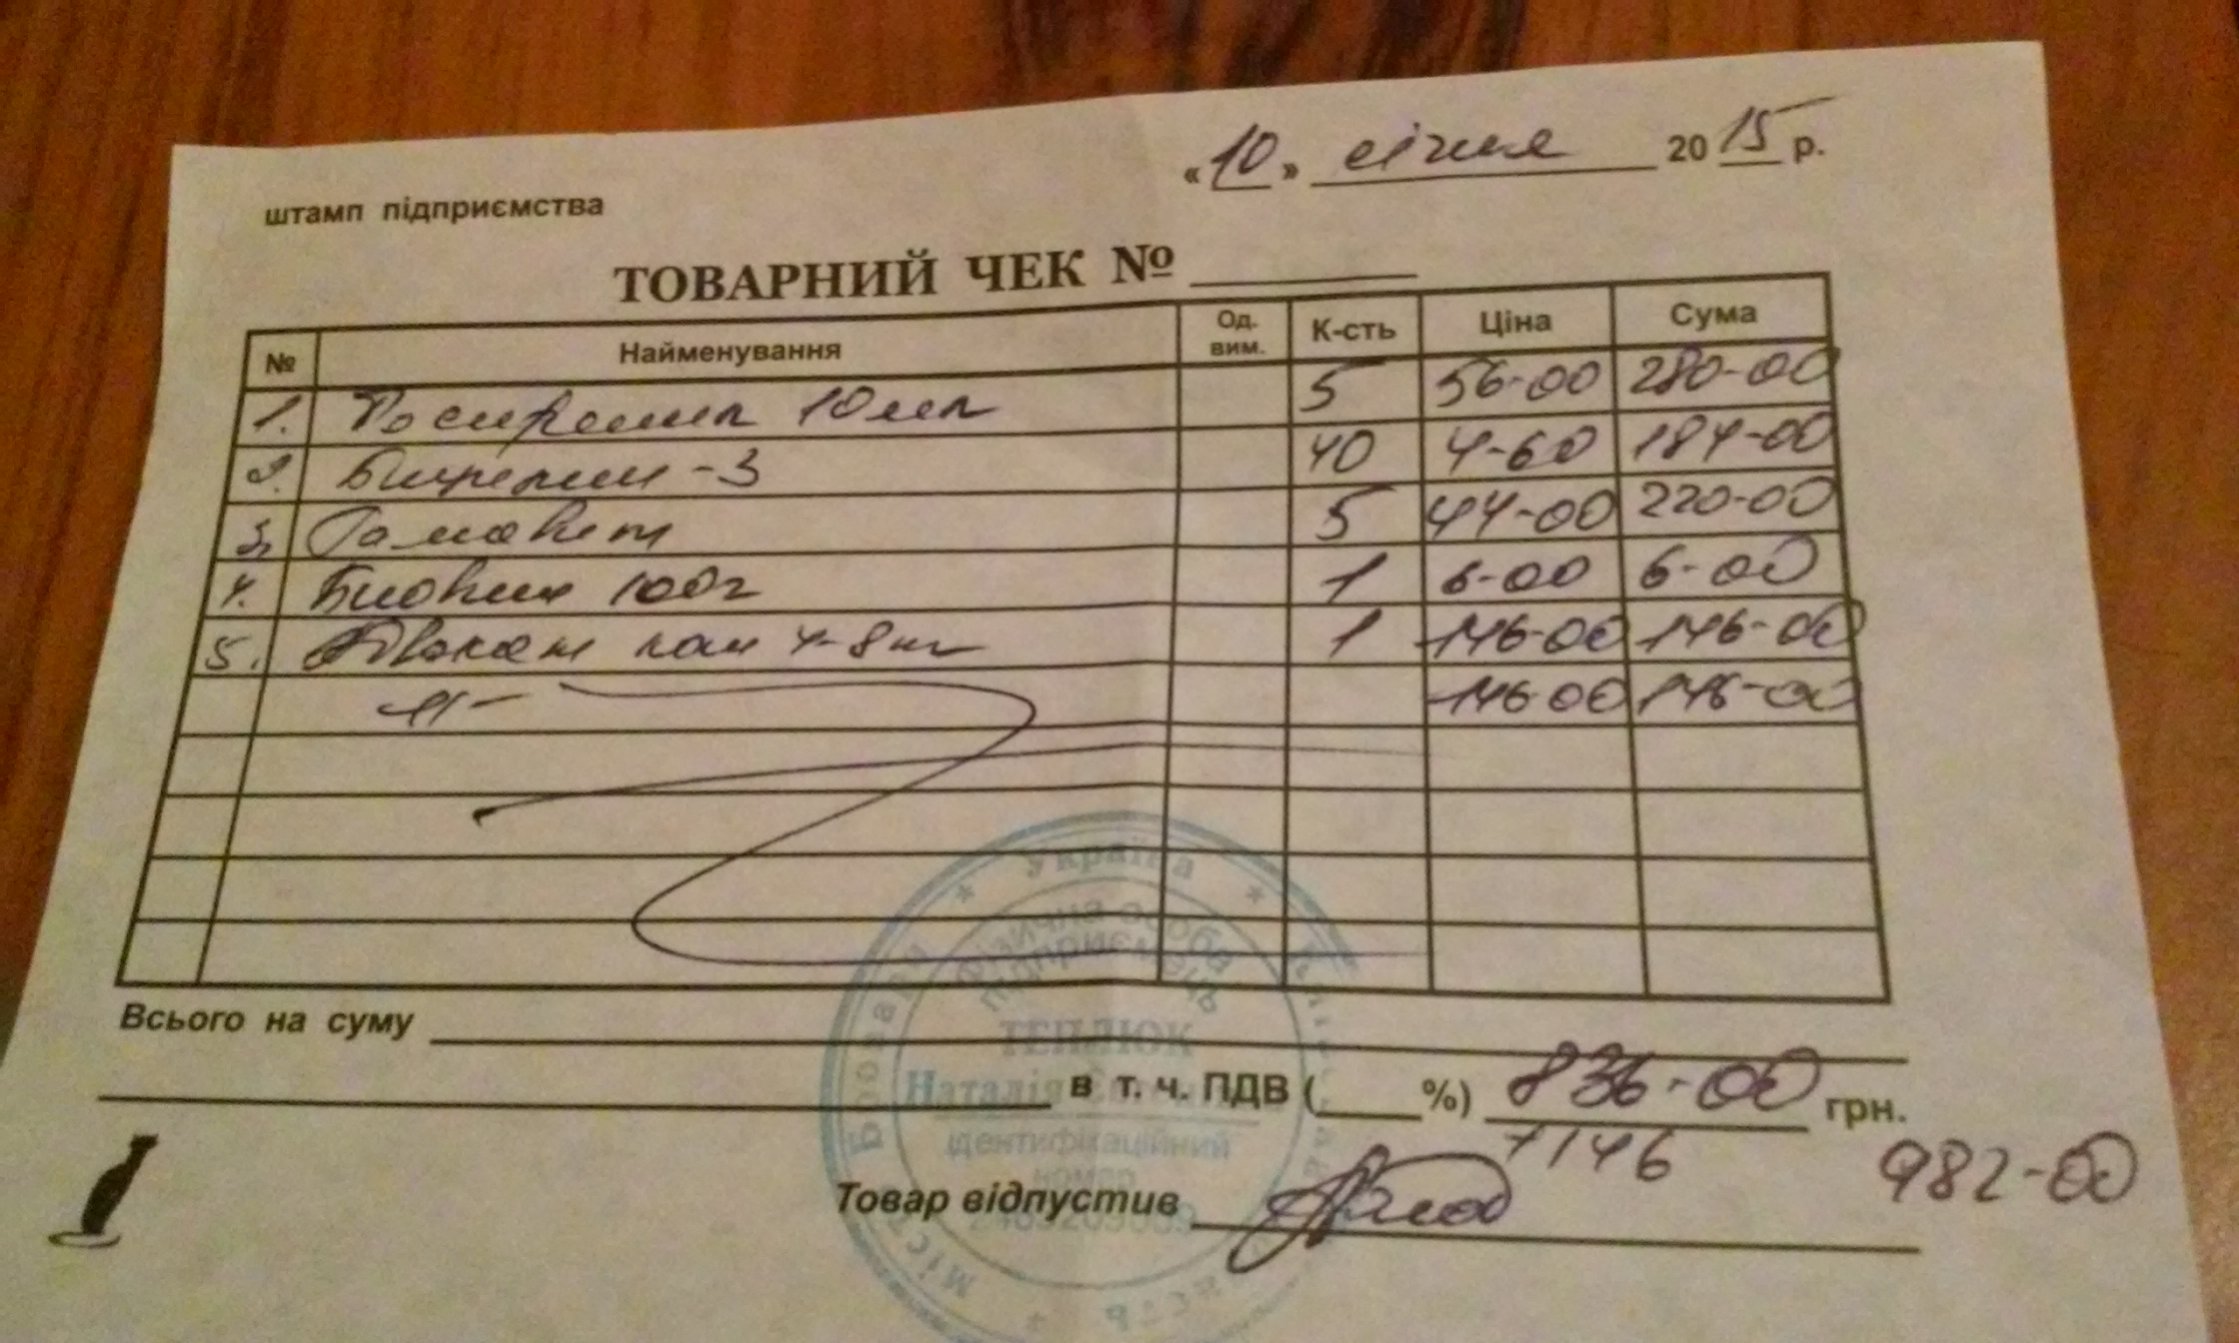 «10» січня 2015 р.
штамп підприємства
ТОВАРНИЙ ЧЕК №
№ Найменування Од. вим. К-сть Ціна Сума
1. 10 мл 5 56-00 280-00
2. -3 40 4-60 184-00
3. Гамавит 5 44-00 220-00
4. Биовит 100г 1 6-00 6-00
5. Адвокат 4-8 кг 1 146-00 146-00
-11- 146-00 146-00
Всього на суму
в т. ч. ПДВ (____%) 836-00 грн.
+146 982-00
Товар відпустив
Україна
Фізична особа
підприємець
ТЕПЛЮК
Наталія
ідентифікаційний
номер
місто Бровари